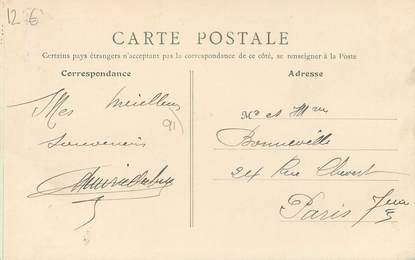 12 €
CARTE POSTALE
Certains pays étrangers n'acceptant pas la correspondance de ce côté, se renseigner à la Poste
Correspondance
Mes meilleurs
91
Souvenirs
Adresse
Mr et Mme
Bonneville
24 Rue Chevert
Paris 7me